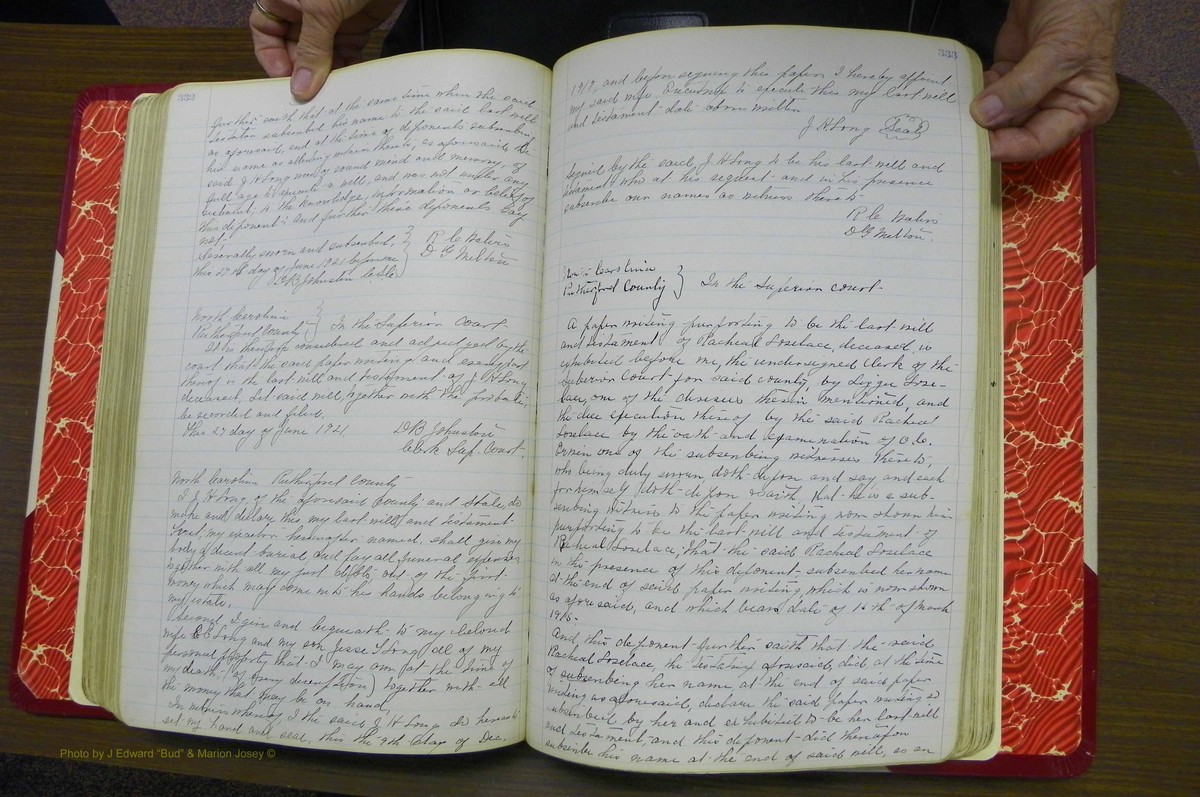 332
further saith that at the same time when the said
testator subscribed his name to the said last will
as aforesaid, and at the time of deponents subscribing
his name as attesting witness thereto, as aforesaid the
said J H Long was of sound mind and memory, of
full age to execute a will, and was not under any
restraint, to the knowledge, information or belief of
this deponent: And further these deponents say
not.
Severally sworn and subscribed, } R C
this 27th day of June 1921 before me } D G Melton
D B Johnston C.S.C.
North Carolina }
Rutherford County } In the Superior Court
It is therefore considered and adjudged by the
court that the said paper writing and every part
thereof is the last will and testament of J H Long
deceased, let said will, together with the probate,
be recorded and filed.
This 27 day of June 1921. D B Johnston
Clerk Sup. Court.
North Carolina Rutherford County
I J H Long, of the aforesaid County and State, do
make and declare this, my last will and testament
First, my executor hereinafter named, shall give my
body a decent burial and pay all funeral expenses
together with all my just debts, out of the first
money which may come into his hands belonging to
my estate.
Second, I give and bequeath to my beloved
wife C C Long and my son Jesse I Long all of my
personal property that I may own at the time of
my death (of every description) together with all
the money that may be on hand,
In witness whereof I the said J H Long do hereunto
set my hand and seal, this the 9th day of Dec.
333
1918, and before signing this paper I hereby appoint
my said wife Executrix to execute this my last will
and testament date above written
J H Long Seal
Signed by the said, J H Long to be his last will and
testament who at his request and in his presence
subscribe our names as witness thereto
R C
D G Melton.
North Carolina }
Rutherford County } In the Superior Court
A paper writing purporting to be the last will
and testament of Racheal Lovelace, deceased, is
exhibited before me, the undersigned Clerk of the
Superior Court for said county, by Lizzie Love-
lace, one of the devisees therein mentioned, and
the due execution thereof by the said Racheal
Lovelace by the oath and examination of
Erwin one of the subscribing witnesses thereto,
who being duly sworn, doth depose and say and each
for himself doth depose & saith, that he is a sub-
scribing witness to the paper writing now shown him
purporting to be the last will and testament of
Racheal Lovelace; that the said Racheal Lovelace
in the presence of this deponent subscribed her name
at the end of said paper writing which is now shown
as aforesaid, and which bears date of 16th of March
1916.
And this deponent further saith that the said
Racheal Lovelace, the testatrix aforesaid, did at the time
of subscribing her name at the end of said paper
writing as aforesaid, declare the said paper writing so
subscribed by her and exhibited to be her last will
and testament, and this deponent did thereupon
subscribe his name at the end of said will, as an
Photo by J Edward "Bud" & Marion Josey ©